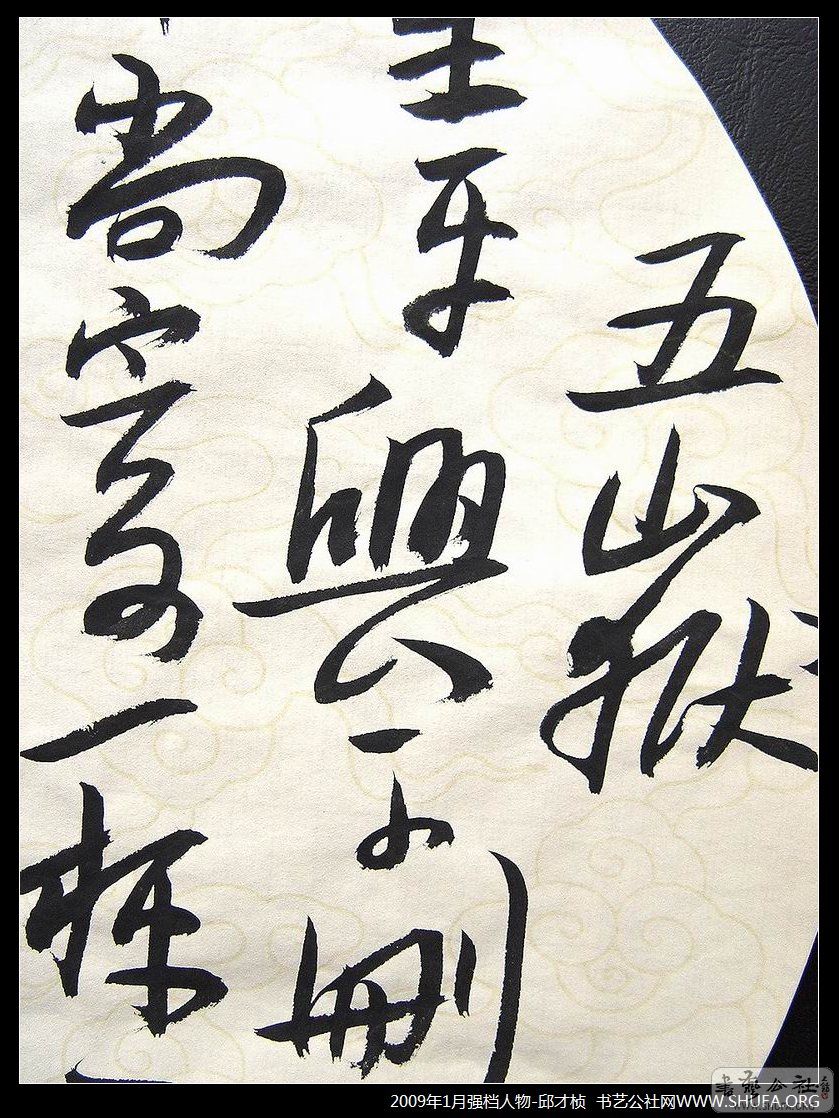 五嶽
生平興不刪
尚 一
书艺公社
2009年1月强档人物-邱才桢 书艺公社网WWW.SHUFA.ORG